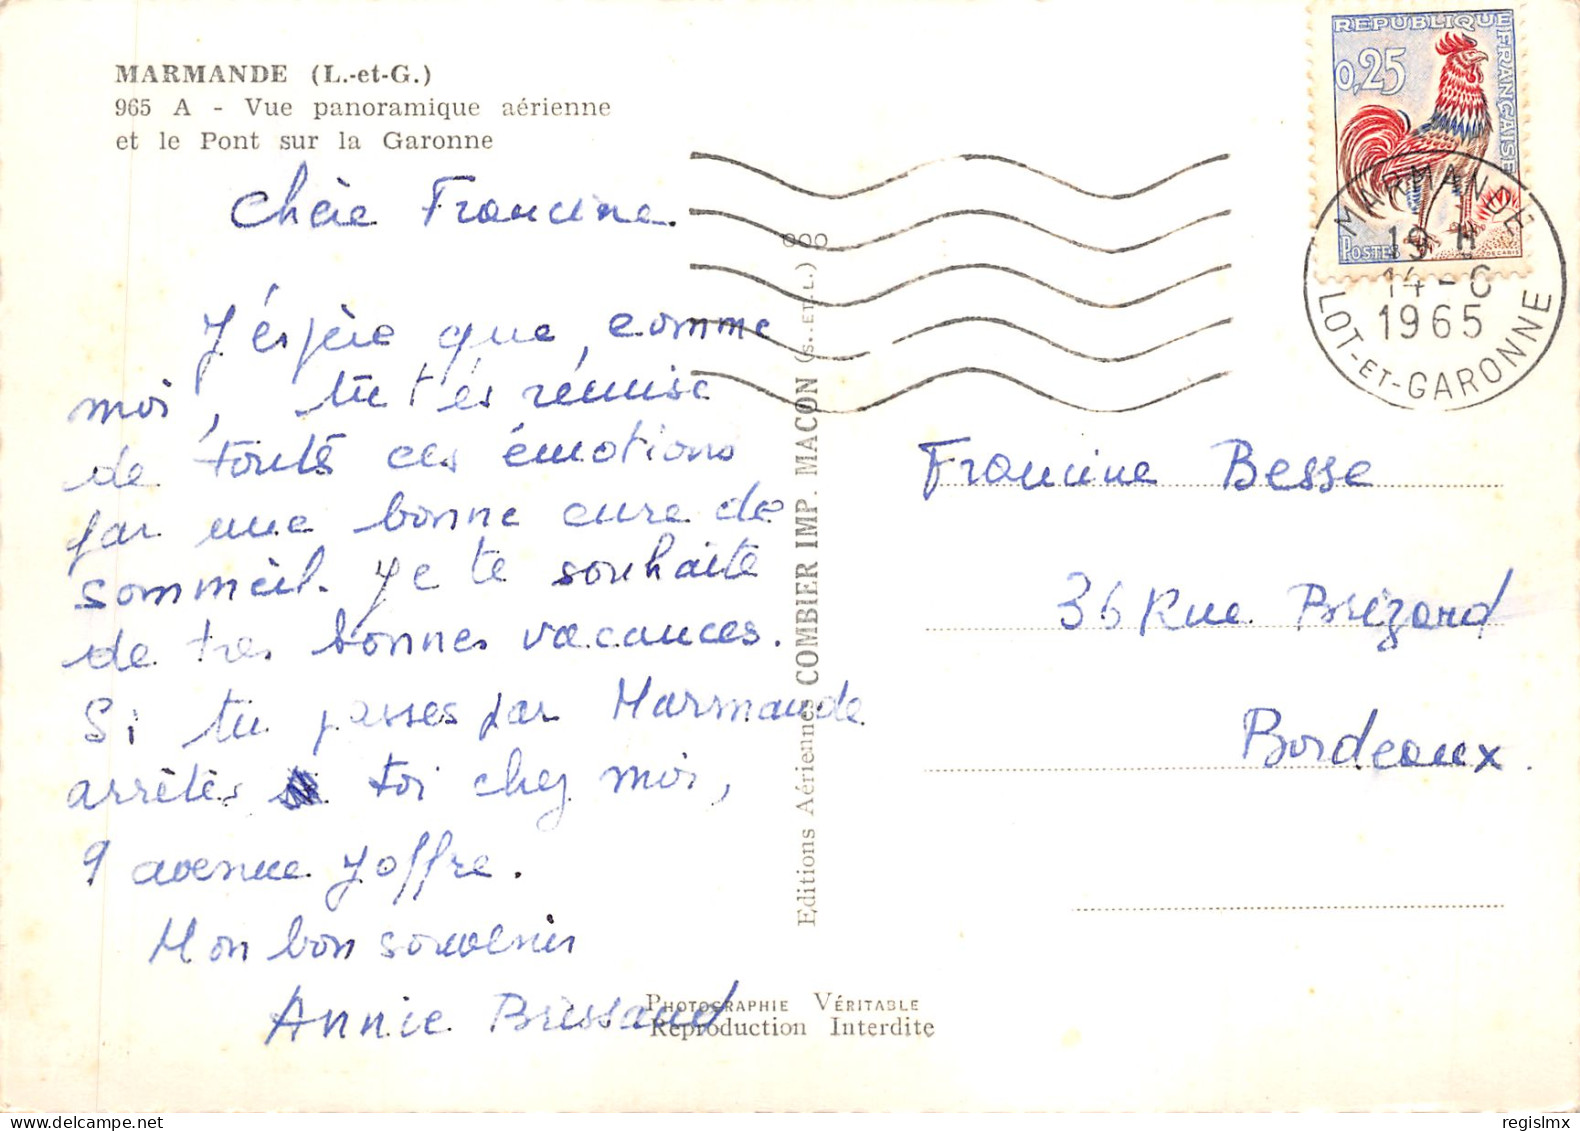 MARMANDE (L.-et-G.)
965 A - Vue panoramique aérienne
et le Pont sur la Garonne
Chère Francine.
J'éspère que, comme
moi, tu t'és rémise
de toutes ces émotions
par une bonne cure de
sommeil. Je te souhaite
de tres bonnes vacances.
Si tu passes par Marmande
arrêtes toi chez moi,
9 avenue Joffre.
Mon bon souvenir
Annie Brissaud
Editions Aériennes COMBIER IMP. MACON (S.-ET-L.) 000
PHOTOGRAPHIE VÉRITABLE
Reproduction Interdite
REPUBLIQUE FRANÇAISE
0,25
POSTES
DECARIS
MARMANDE
19 H
14-6
1965
LOT-ET-GARONNE
Francine Besse
36 Rue Brizard
Bordeaux.
regislmx